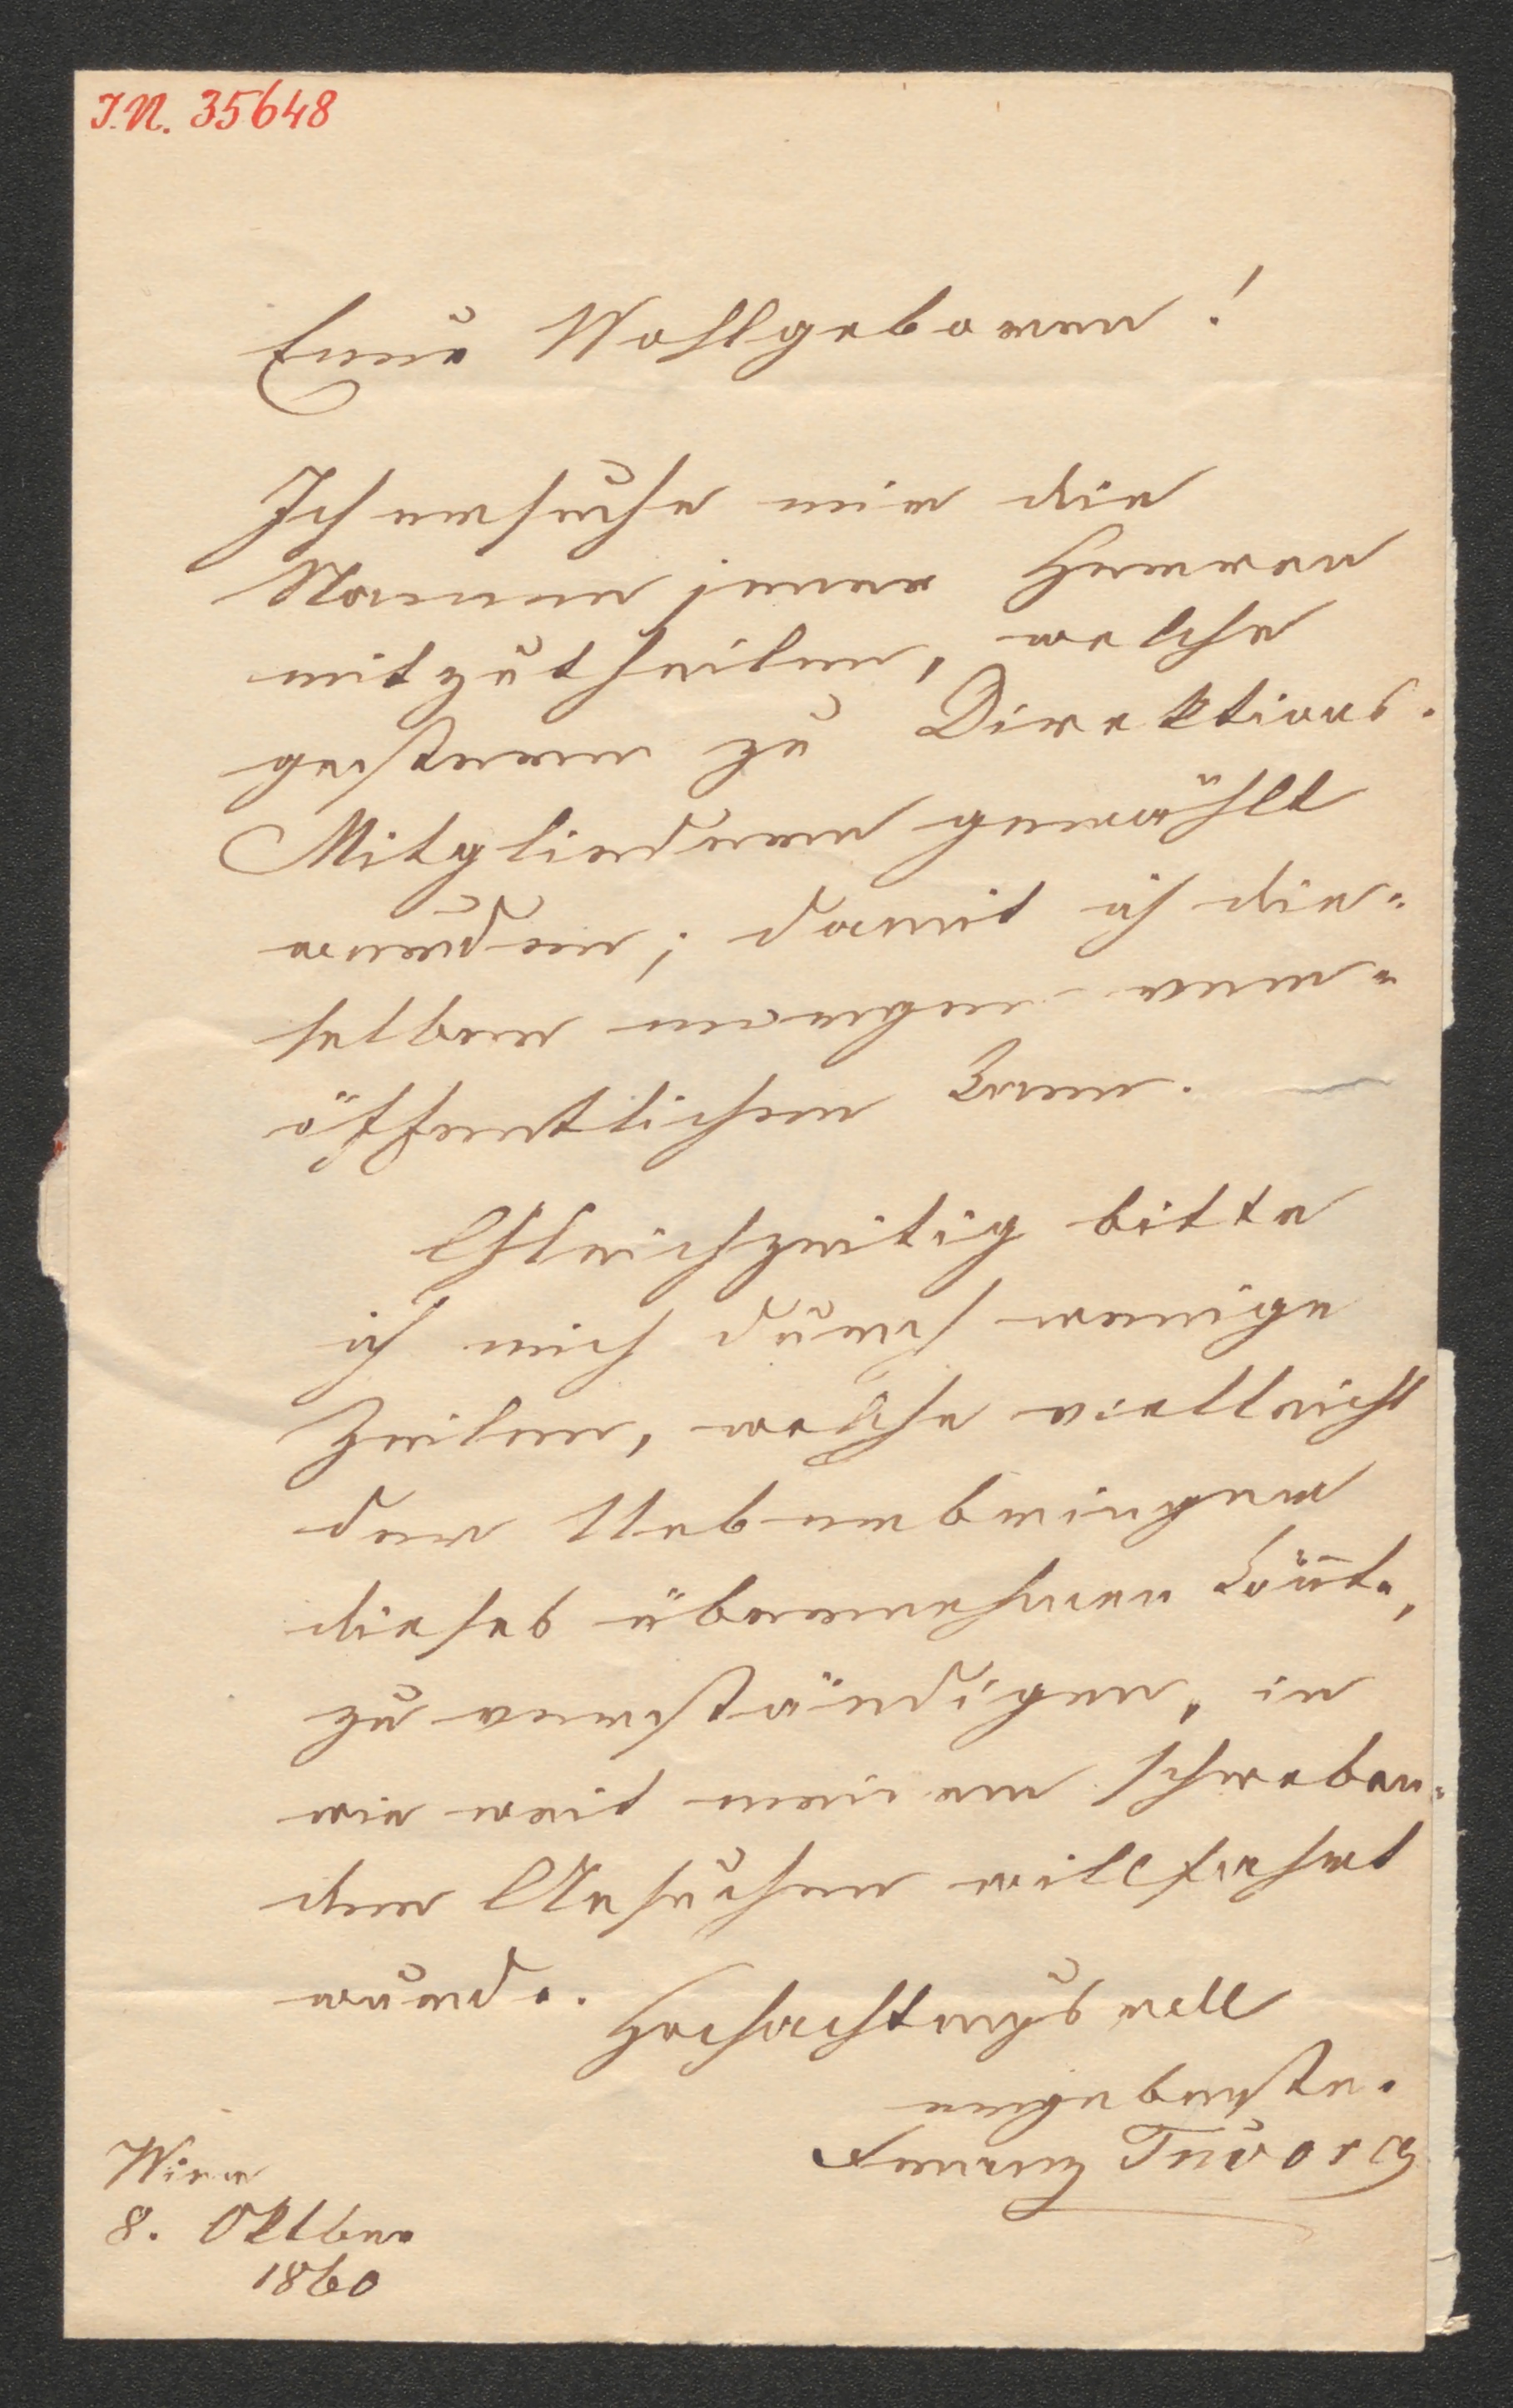 I.N. 35648
Euer Wohlgeboren!
Ich ersuche mir die
Namen jener Herren
mitzutheilen, welche
gestern zu Direktions-
Mitgliedern gewählt
wurden; damit ich die-
selben morgen ver-
öffentlichen kann.
Gleichzeitig bitte
ich mich durch wenige
Zeilen, welche vielleicht
der Ueberbringer
dieses übernehmen könnte,
zu verständigen, in
wie weit meinem schweben-
den Ansuchen willfahrt
wurde.
Hochachtungsvoll
ergebenster
Franz
Wien
8. Oktber
1860